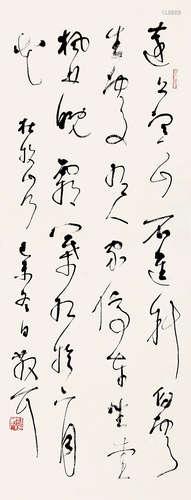 遠上寒山石逕斜白雲
生處有人家停車坐愛
楓林晚霜葉紅於二月
花
杜牧山行 己未冬日